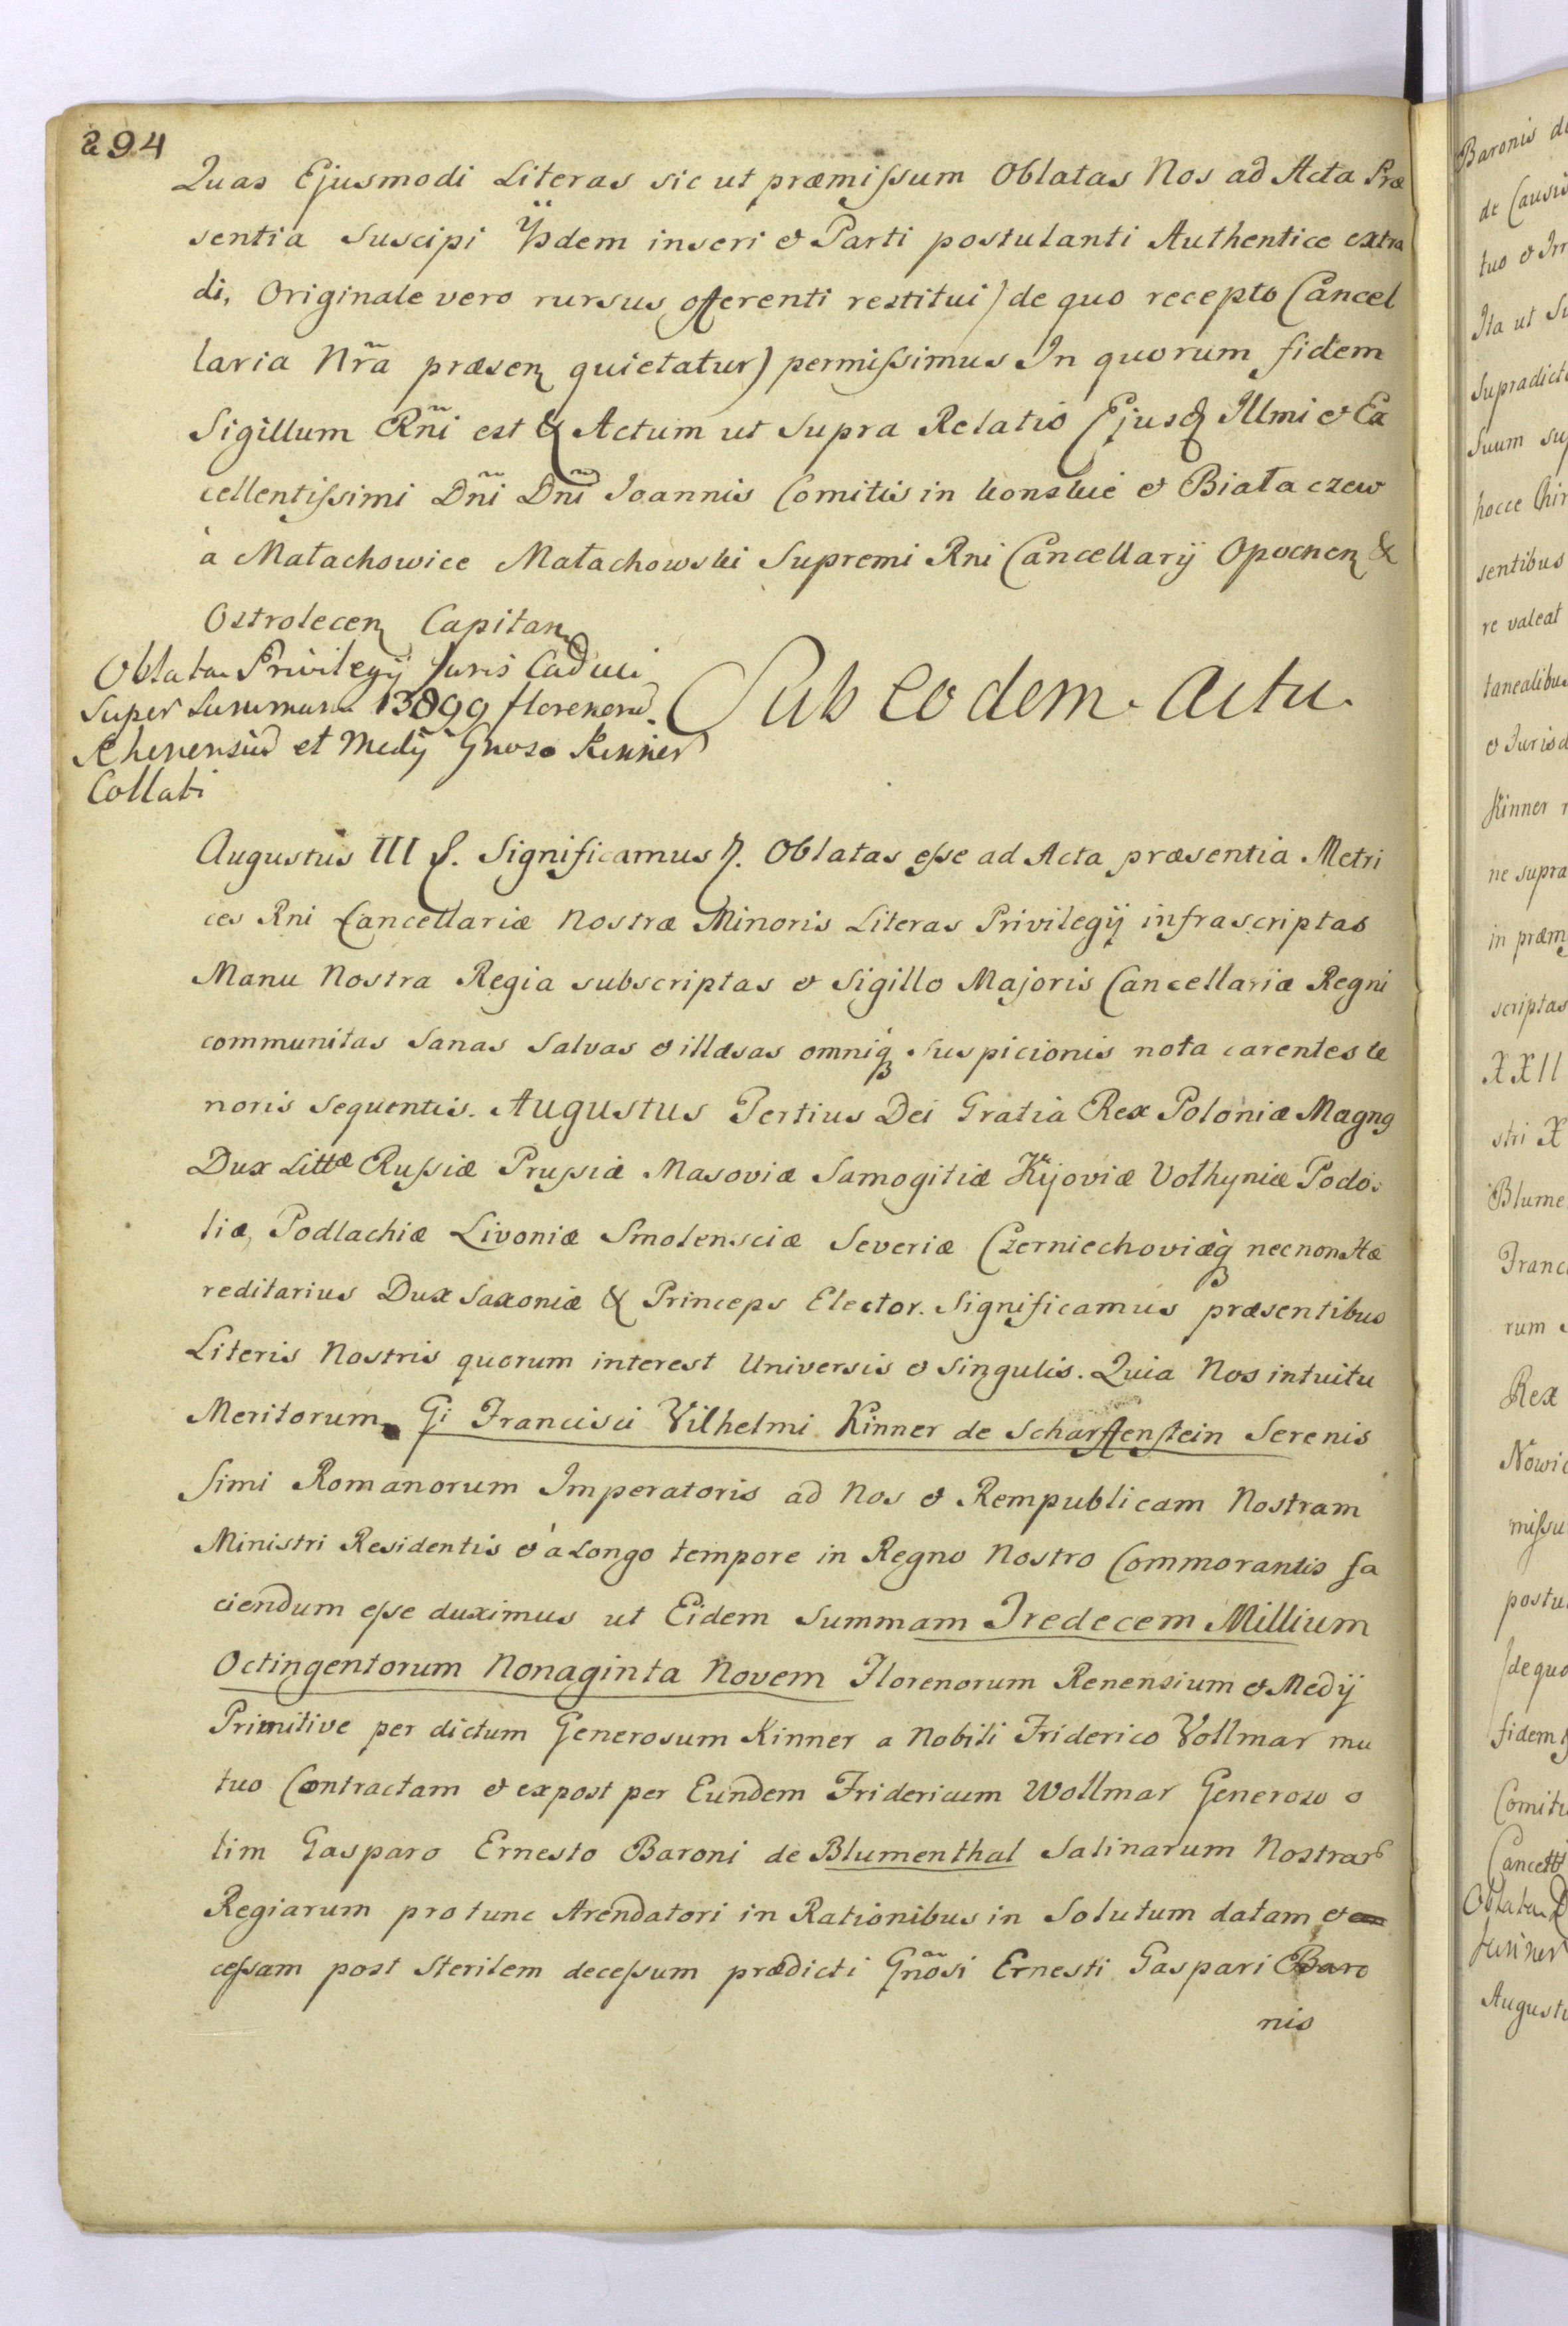 294
Quas Ejusmodi Literas sic ut præmissum Oblatas Nos ad Acta Præ
sentia suscipi Ÿsdem inseri et Parti postulanti Authentice extra
di, Originale vero rursus offerenti restitui (de quo recepto Cancel
laria Nr̃a præsen quietatur) permissimus In quorum fidem
Sigillum Rñi est & Actum ut supra Relatio Ejusd Illmi et Ex
cellentissimi Dñi Dñi Joannis Comitis in Konskie et Białaczew
à Małachowice Małachowski Supremi Rni Cancellarij Opocnen &
Ostrolecen Capitan
Oblata Privilegij Juris Caduci
super Summam 13899 florenorū
Rhenensiū et Medij Gnoso Kinner
Collati
Sub eodem Actu.
Augustus III &. Significamus &. Oblatas esse ad Acta præsentia Metri
ces Rni Cancellariæ Nostræ Minoris Literas Privilegij infrascriptas
Manu Nostra Regia subscriptas et Sigillo Majoris Cancellariæ Regni
communitas Sanas Salvas et illæsas omniq suspicionis nota carentes te
noris sequentis. Augustus Tertius Dei Gratia Rex Poloniæ Magng
Dux Littæ Russiæ Prussiæ Masoviæ Samogitiæ Kijoviæ Volhyniæ Podo
liæ, Podlachiæ Livoniæ Smolensciæ Severiæ Czerniechoviæq necnon Hæ
reditarius Dux Saxoniæ & Princeps Elector. Significamus præsentibus
Literis Nostris quorum interest Universis et singulis. Quia Nos intuitu
Meritorum Gi Francisci Vilhelmi Kinner de Scharffenstein Serenis
simi Romanorum Imperatoris ad Nos et Rempublicam Nostram
Ministri Residentis et à longo tempore in Regno Nostro Commorantis fa
ciendum esse duximus ut Eidem Summam Tredecem Millium
Octingentorum Nonaginta Novem Florenorum Renensium et Medij
Primitive per dictum Generosum Kinner a Nobili Friderico Vollmar mu
tuo Contractam et expost per Eundem Fridericum Wollmar Generoso o
lim Gasparo Ernesto Baroni de Blumenthal Salinarum Nostrar
Regiarum protunc Arendatori in Rationibus in Solutum datam et
cessam post sterilem decessum prædicti Gñosi Ernesti Gaspari Baro
nis
Baronis de
de Causis
tuo et Irr
Ita ut Su
supradict
suum su
hocce Chir
sentibus
re valeat
tanealibus
et Jurisd
Kinner
ne supra
in præm
scriptas
XXII
stri X
Blume
Franc
rum
Rex
Nowi
missu
postu
(de quo
fidem
Comiti
Cancell
Oblata
Kinner
Augustu